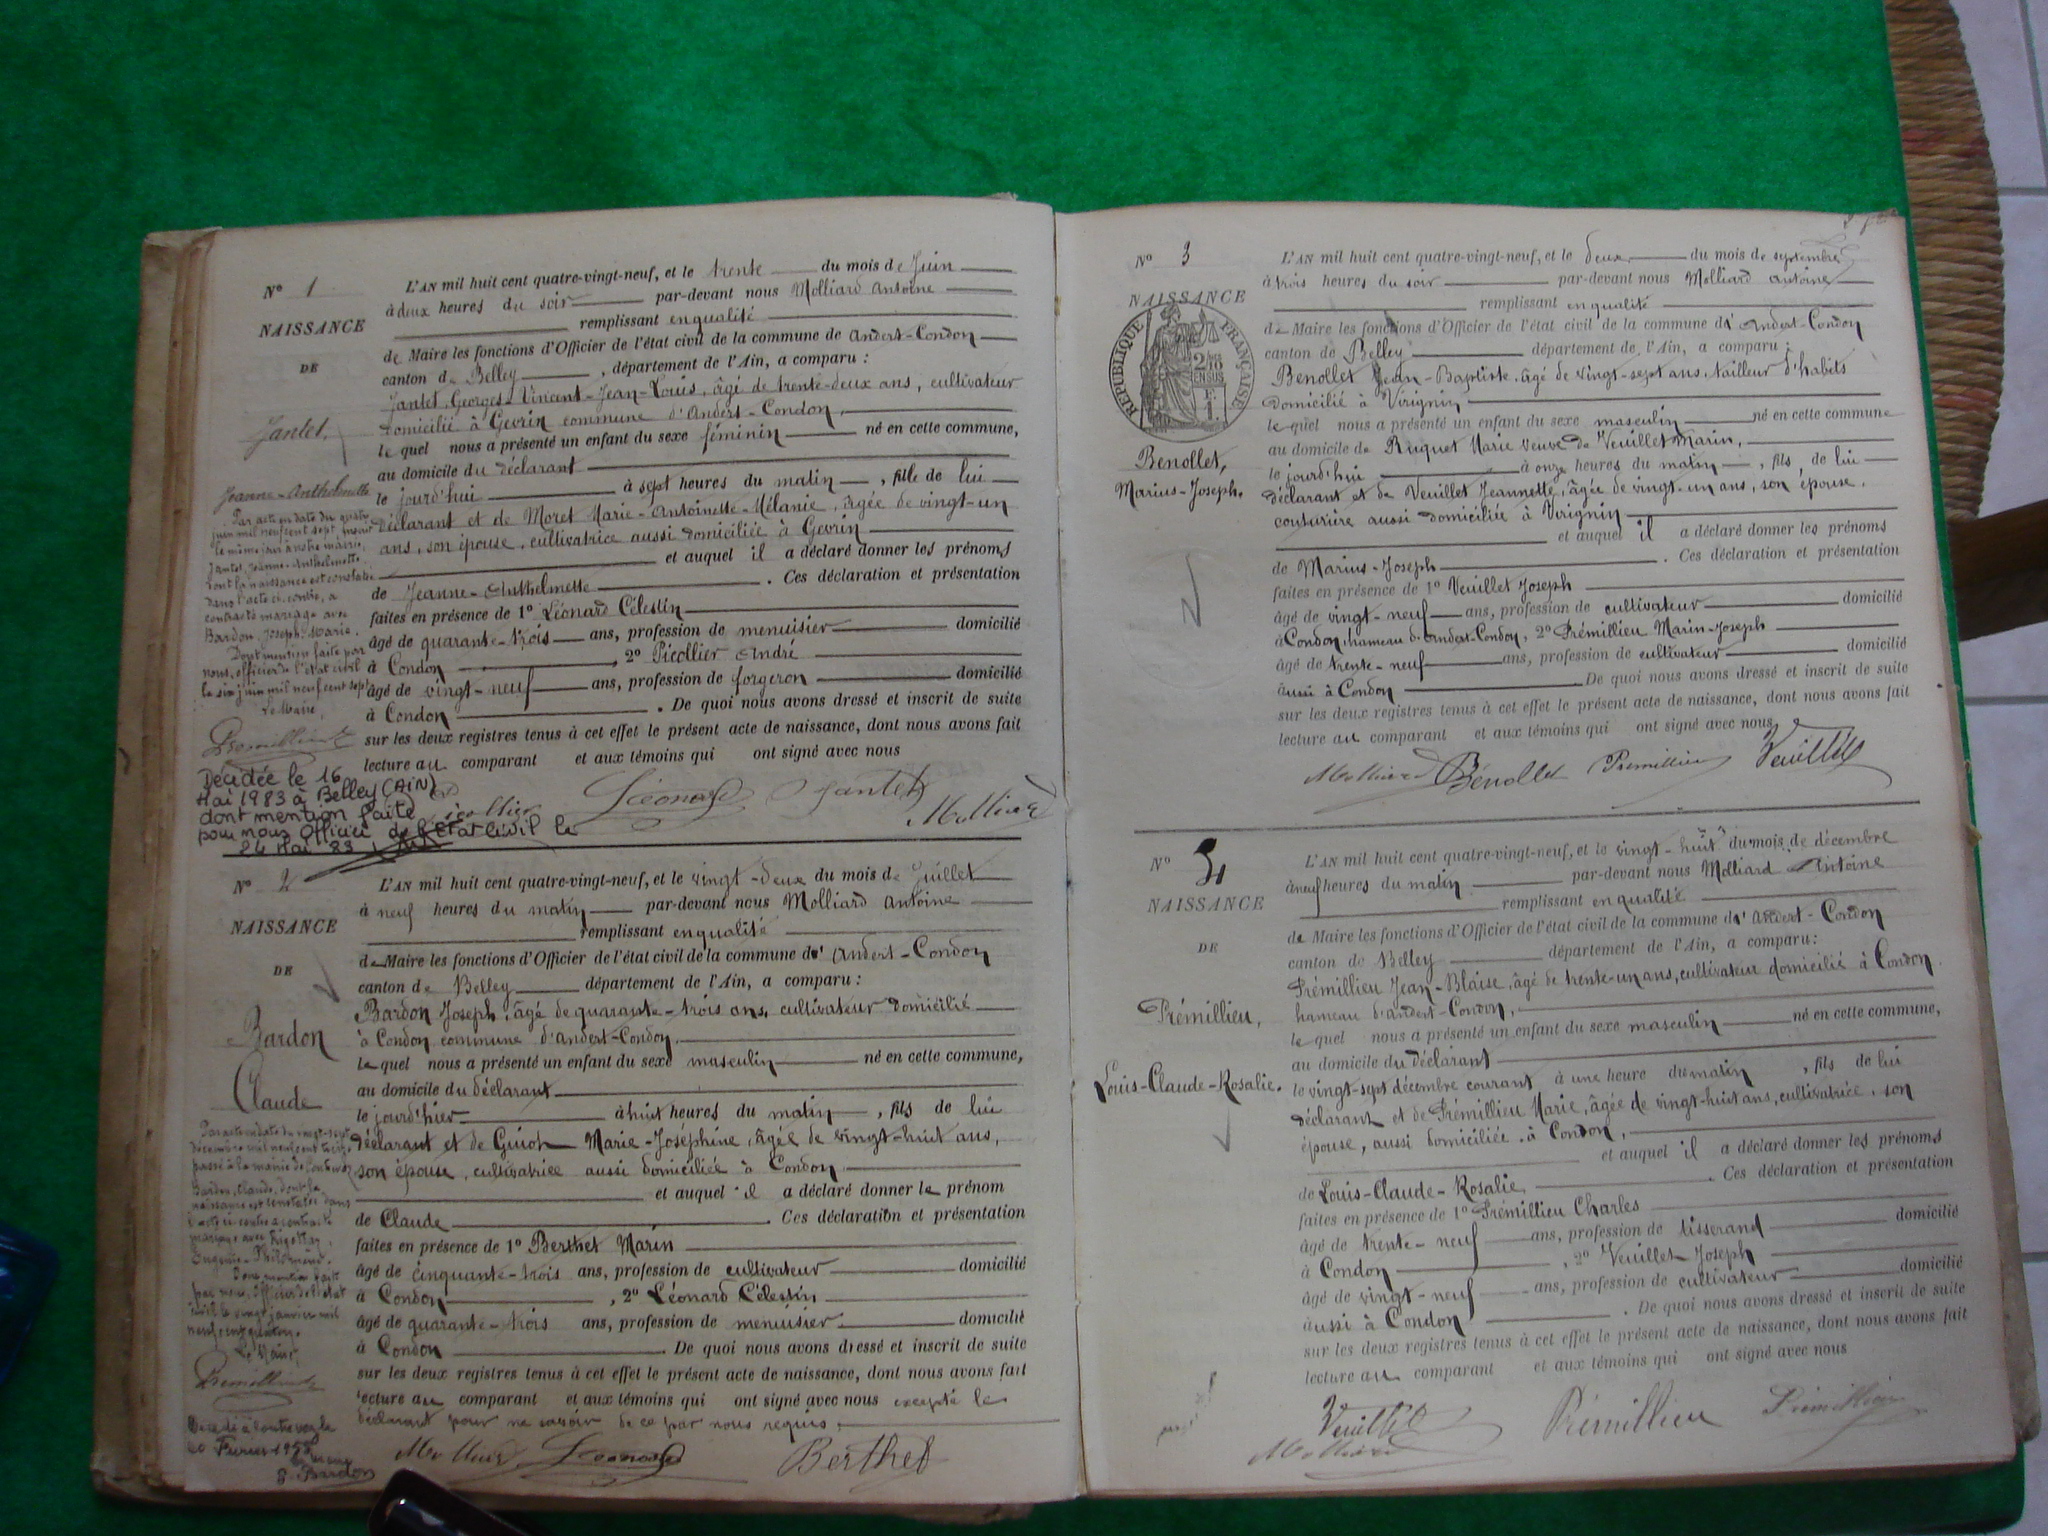 N° 1
NAISSANCE
DE
Jantet,
Jeanne-Anthelmette
Par acte en date du quatre
juin mil neuf cent sept, inscrit
le même jour à notre mairie,
Jantet, Jeanne-Anthelmette
dont la naissance est constatée
dans l'acte ci-contre, a
contracté mariage avec
Bardon, Joseph-Marie.
Dont mention faite par
nous, officier de l'état civil
le six juin mil neuf cent sept
Le Maire,
Prémillieu
Décédée le 16
Mai 1983 à Belley (AIN)
dont mention faite
par nous Officier de l'État Civil le
24 Mai 83
L'AN mil huit cent quatre-vingt-neuf, et le trente du mois de Juin
à deux heures du soir par-devant nous Molliard Antoine
remplissant en qualité
de Maire les fonctions d'Officier de l'état civil de la commune de Andert-Condon
canton de Belley, département de l'Ain, a comparu :
Jantet, Georges-Vincent-Jean-Louis, âgé de trente-deux ans, cultivateur
domicilié à Gevrin commune d'Andert-Condon,
le quel nous a présenté un enfant du sexe féminin né en cette commune,
au domicile du déclarant
le jourd'hui à sept heures du matin, fille de lui
déclarant et de Moret Marie-Antoinette-Mélanie, âgée de vingt-un
ans, son épouse, cultivatrice aussi domiciliée à Gevrin
et auquel il a déclaré donner les prénoms
de Jeanne-Anthelmette. Ces déclaration et présentation
faites en présence de 1° Léonard Célestin
âgé de quarante-trois ans, profession de menuisier domicilié
à Condon, 2° Picollier André
âgé de vingt-neuf ans, profession de forgeron domicilié
à Condon. De quoi nous avons dressé et inscrit de suite
sur les deux registres tenus à cet effet le présent acte de naissance, dont nous avons fait
lecture au comparant et aux témoins qui ont signé avec nous
Picollier Léonard Jantet Molliard
N° 2
NAISSANCE
DE
Bardon
Claude
Par acte en date du vingt-sept
décembre mil neuf cent treize
passé à la mairie de
Bardon, Claude, dont la
naissance est constatée dans
l'acte ci-contre a contracté
mariage avec
Eugénie-Philomène.
Dont mention faite
par nous, Officier de l'état
civil le vingt janvier mil
neuf cent quatorze.
Le Maire,
Prémillieu
Décédé à
20 Février 1958
le maire
Bardon
L'AN mil huit cent quatre-vingt-neuf, et le vingt-deux du mois de Juillet
à neuf heures du matin par-devant nous Molliard Antoine
remplissant en qualité
de Maire les fonctions d'Officier de l'état civil de la commune d'Andert-Condon
canton de Belley département de l'Ain, a comparu :
Bardon Joseph, âgé de quarante-trois ans, cultivateur domicilié
à Condon commune d'Andert-Condon.
le quel nous a présenté un enfant du sexe masculin né en cette commune,
au domicile du déclarant
le jourd'hier à huit heures du matin, fils de lui
déclarant et de Guiot Marie-Joséphine, âgée de vingt-huit ans,
son épouse, cultivatrice aussi domiciliée à Condon
et auquel il a déclaré donner le prénom
de Claude. Ces déclaration et présentation
faites en présence de 1° Berthet Marin
âgé de cinquante-trois ans, profession de cultivateur domicilié
à Condon, 2° Léonard Célestin
âgé de quarante-trois ans, profession de menuisier domicilié
à Condon. De quoi nous avons dressé et inscrit de suite
sur les deux registres tenus à cet effet le présent acte de naissance, dont nous avons fait
lecture au comparant et aux témoins qui ont signé avec nous excepté le
déclarant pour ne savoir de ce par nous requis.
Molliard Léonard Berthet
N° 3
NAISSANCE
RÉPUBLIQUE FRANÇAISE
2/10
EN SUS
Benollet,
Marius-Joseph.
L'AN mil huit cent quatre-vingt-neuf, et le deux du mois de septembre
à trois heures du soir par-devant nous Molliard Antoine
remplissant en qualité
de Maire les fonctions d'Officier de l'état civil de la commune d'Andert-Condon
canton de Belley département de l'Ain, a comparu :
Benollet Jean-Baptiste, âgé de vingt-sept ans, tailleur d'habits
domicilié à Virignin
le quel nous a présenté un enfant du sexe masculin né en cette commune
au domicile de Ruquet Marie veuve de Veuillet Marin,
le jourd'hui à onze heures du matin, fils de lui
déclarant et de Veuillet Jeannette, âgée de vingt-un ans, son épouse,
couturière aussi domiciliée à Virignin
et auquel il a déclaré donner les prénoms
de Marius-Joseph. Ces déclaration et présentation
faites en présence de 1° Veuillet Joseph
âgé de vingt-neuf ans, profession de cultivateur domicilié
à Condon, hameau d'Andert-Condon, 2° Prémillieu Marin-Joseph
âgé de trente-neuf ans, profession de cultivateur domicilié
aussi à Condon De quoi nous avons dressé et inscrit de suite
sur les deux registres tenus à cet effet le présent acte de naissance, dont nous avons fait
lecture au comparant et aux témoins qui ont signé avec nous
Molliard Bénollet Prémillieu Veuillet
N° 4
NAISSANCE
DE
Prémillieu,
Louis-Claude-Rosalie.
L'AN mil huit cent quatre-vingt-neuf, et le vingt-huit du mois de décembre
à neuf heures du matin par-devant nous Molliard Antoine
remplissant en qualité
de Maire les fonctions d'Officier de l'état civil de la commune d'Andert-Condon
canton de Belley département de l'Ain, a comparu :
Prémillieu Jean-Blaise, âgé de trente-un ans, cultivateur domicilié à Condon
hameau d'Andert-Condon,
le quel nous a présenté un enfant du sexe masculin né en cette commune,
au domicile du déclarant
le vingt-sept décembre courant à une heure du matin, fils de lui
déclarant et de Prémillieu Marie, âgée de vingt-huit ans, cultivatrice, son
épouse, aussi domiciliée à Condon,
et auquel il a déclaré donner les prénoms
de Louis-Claude-Rosalie. Ces déclaration et présentation
faites en présence de 1° Prémillieu Charles
âgé de trente-neuf ans, profession de tisserand domicilié
à Condon, 2° Veuillet Joseph
âgé de vingt-neuf ans, profession de cultivateur domicilié
aussi à Condon. De quoi nous avons dressé et inscrit de suite
sur les deux registres tenus à cet effet le présent acte de naissance, dont nous avons fait
lecture au comparant et aux témoins qui ont signé avec nous
Veuillet Prémillieu Prémillieu
Molliard